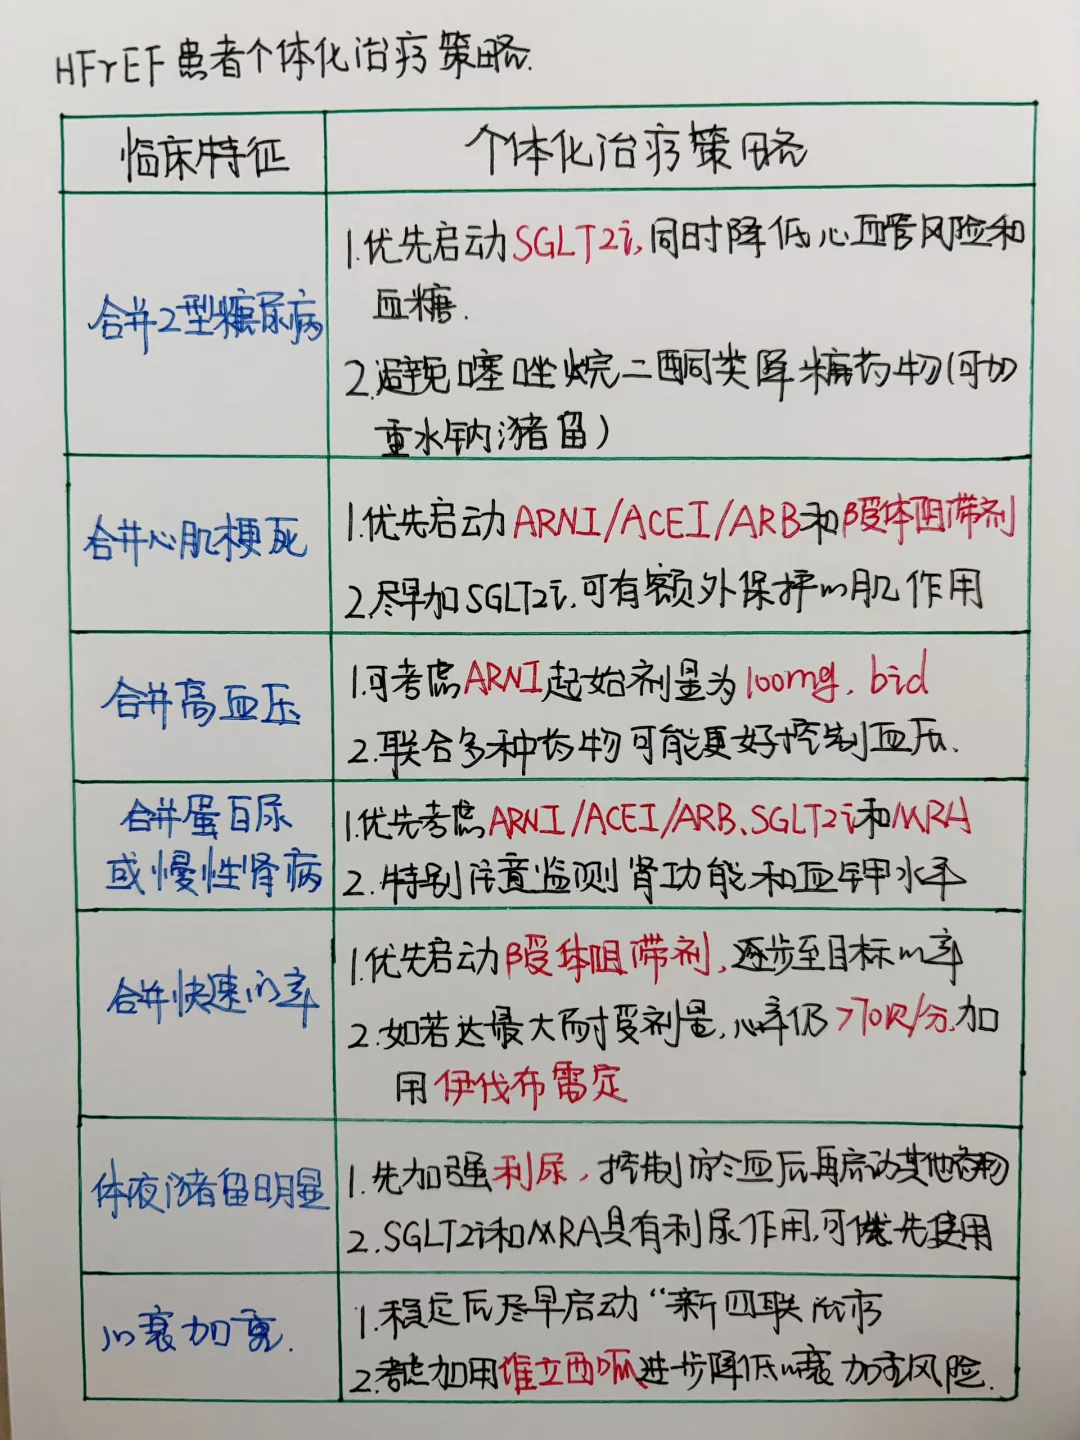 HFrEF患者个体化治疗策略.
临床特征
个体化治疗策略
合并2型糖尿病
1.优先启动SGLT2i,同时降低心血管风险和
血糖.
2.避免噻唑烷二酮类降糖药物(可加
重水钠潴留)
合并心肌梗死
1.优先启动ARNI/ACEI/ARB和β受体阻滞剂
2.尽早加SGLT2i,可有额外保护心肌作用
合并高血压
1.可考虑ARNI起始剂量为100mg, bid
2.联合多种药物可能更好控制血压.
合并蛋白尿
或慢性肾病
1.优先考虑ARNI/ACEI/ARB、SGLT2i和MRA
2.特别注意监测肾功能和血钾水平
合并快速心率
1.优先启动β受体阻滞剂,逐步至目标心率
2.如若达最大耐受剂量,心率仍>70次/分,加
用伊伐布雷定
体液潴留明显
1.先加强利尿,控制淤血后再启动其他药物
2.SGLT2i和MRA具有利尿作用,可优先使用
心衰加重.
1.稳定后尽早启动“新四联治疗
2.考虑加用维立西呱进步降低心衰加重风险.